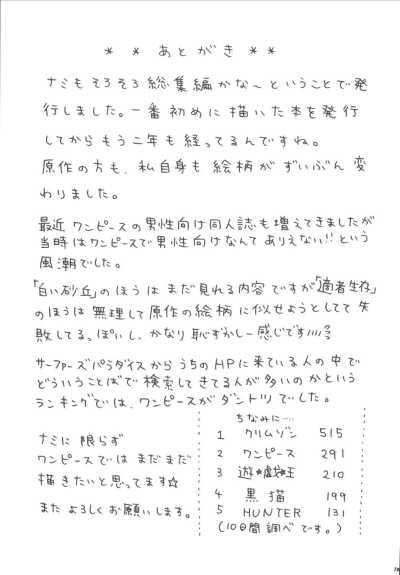 ＊ ＊ あとがき ＊ ＊
ナミもそろそろ総集編かな〜ということで発
行しました。一番初めに描いた本を発行
してからもう二年も経ってるんですね。
原作の方も、私自身も絵柄がずいぶん変
わりました。
最近ワンピースの男性向け同人誌も増えてきましたが
当時はワンピースで男性向けなんてありえない!!という
風潮でした。
「白い砂丘」のほうはまだ見れる内容ですが「適者生存」
のほうは無理して原作の絵柄に似せようとしてて失
敗してるっぽいし、かなり恥ずかしー感じです
サーファーズパラダイスからうちのHPに来ている人の中で
どういうことばで検索してきてる人が多いのかという
ランキングでは、ワンピースがダントツでした。
ナミに限らず
ワンピースではまだまだ
描きたいと思ってます☆
またよろしくお願いします。
ちなみに…
1 クリムゾン 515
2 ワンピース 291
3 遊☆戯☆王 210
4 黒猫 199
5 HUNTER 131
(10日間調べです。)